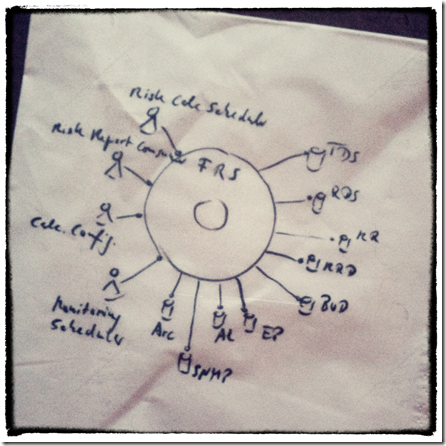 Risk Calc Scheduler
Risk Report Consumer
FRS
TDS
RDS
Calc. Config.
RR
MRD
BUD
Monitoring
Scheduler
Arc
AL
EP
SNMP